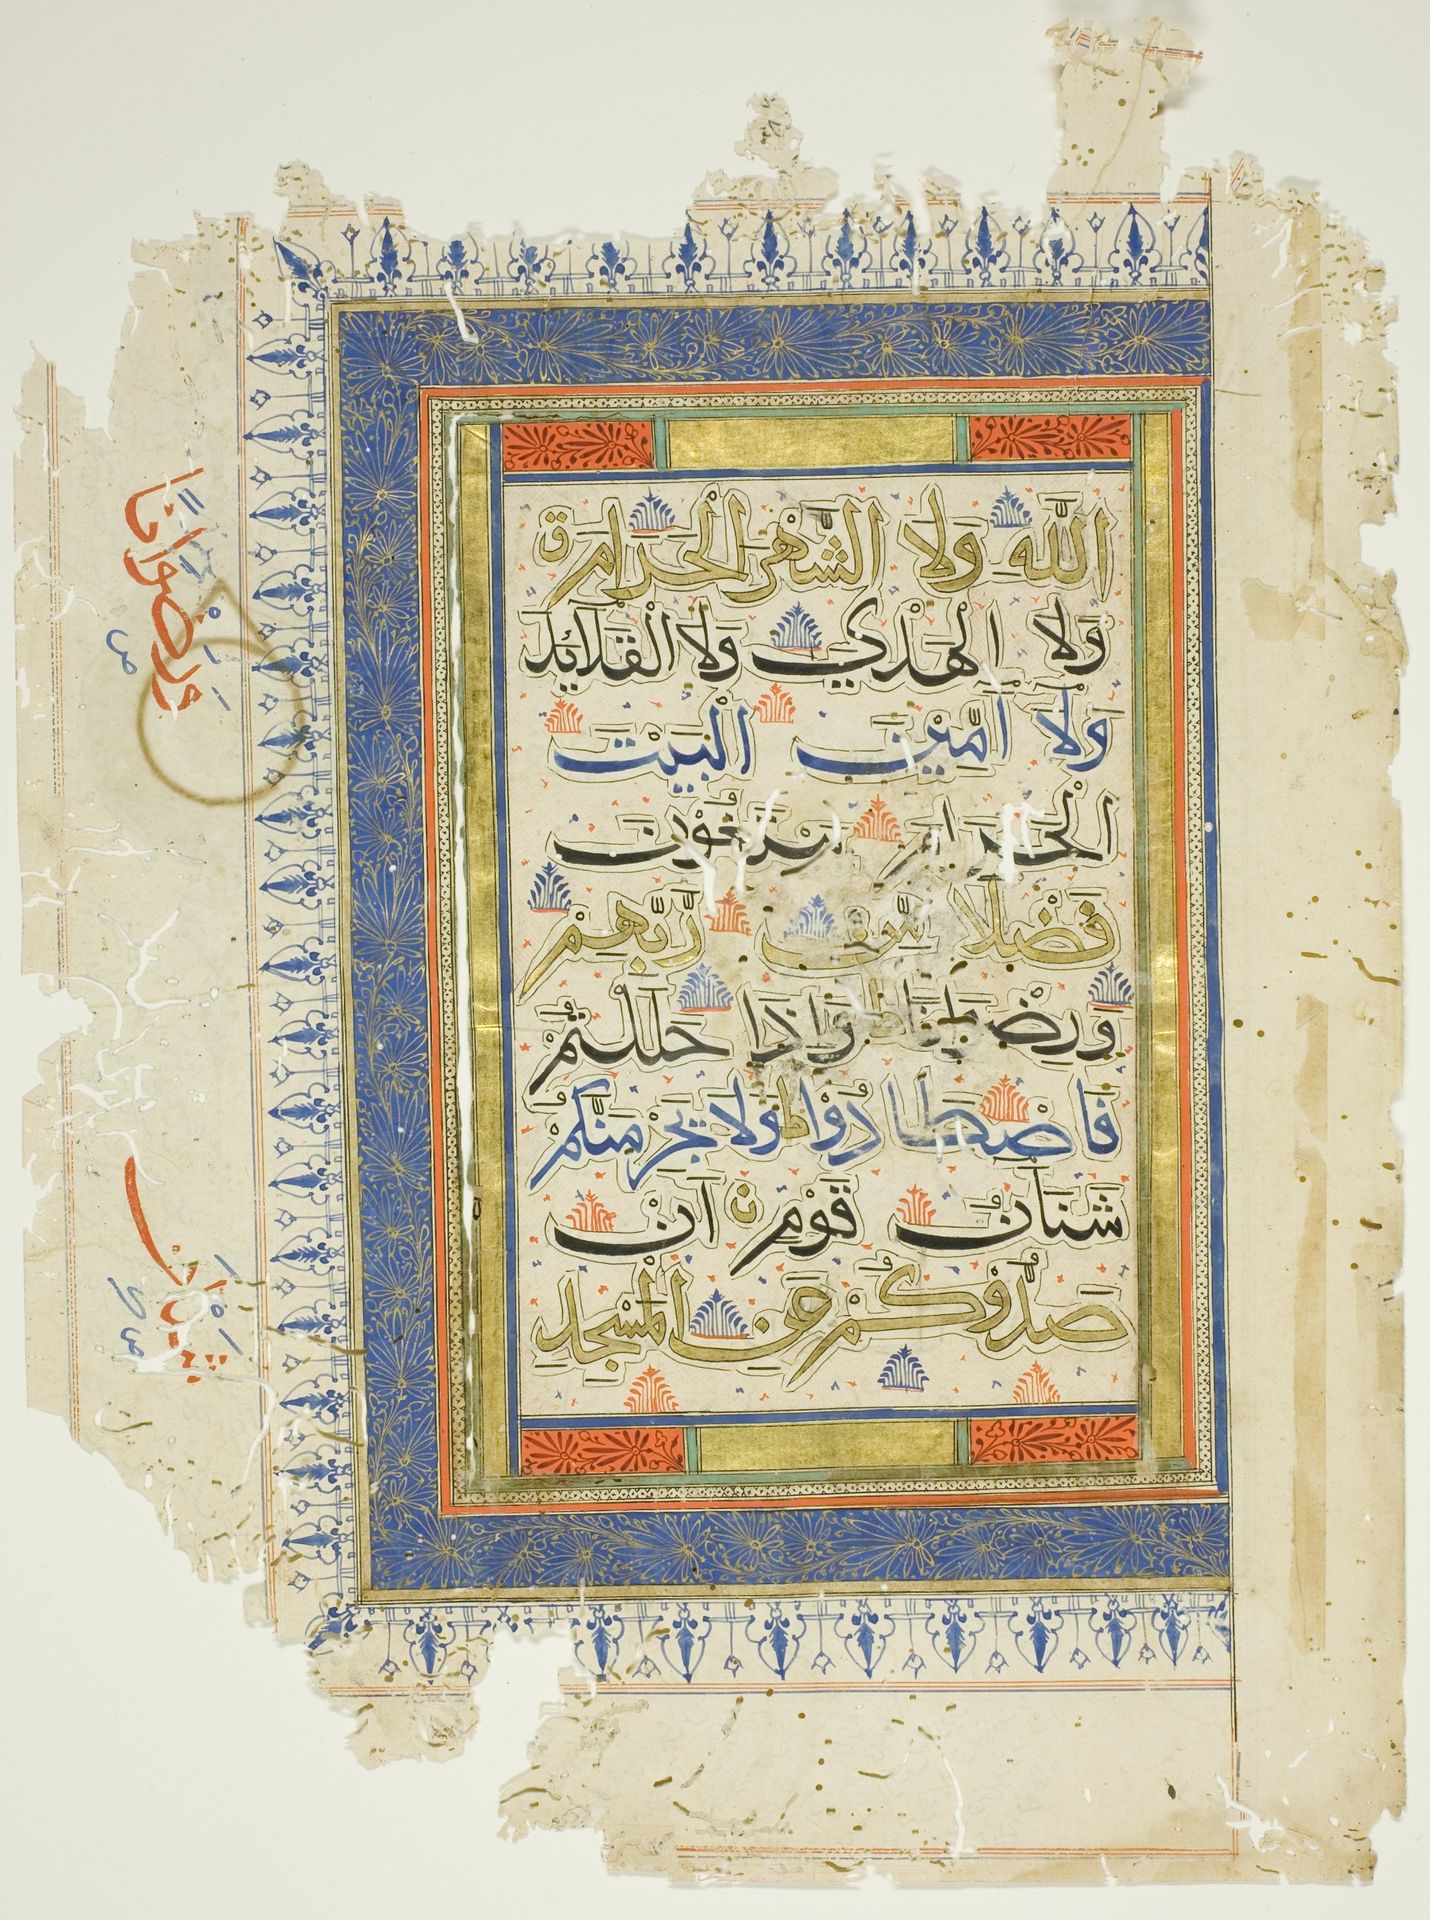 اللّٰهِ وَلَا الشَّهْرَ الْحَرَامَ ق
وَلَا الْهَدْيَ وَلَا الْقَلَائِدَ
وَلَا آمِّينَ الْبَيْتَ
الْحَرَامَ يَبْتَغُونَ
فَضْلًا مِّن رَّبِّهِمْ
وَرِضْوَانًا ط وَاِذَا حَلَلْتُمْ
فَاصْطَادُوا ط وَلَا يَجْرِمَنَّكُمْ
شَنَآنُ قَوْمٍ ن اَنْ
صَدُّوكُمْ عَنِ الْمَسْجِدِ
وَرِضْوَانًا